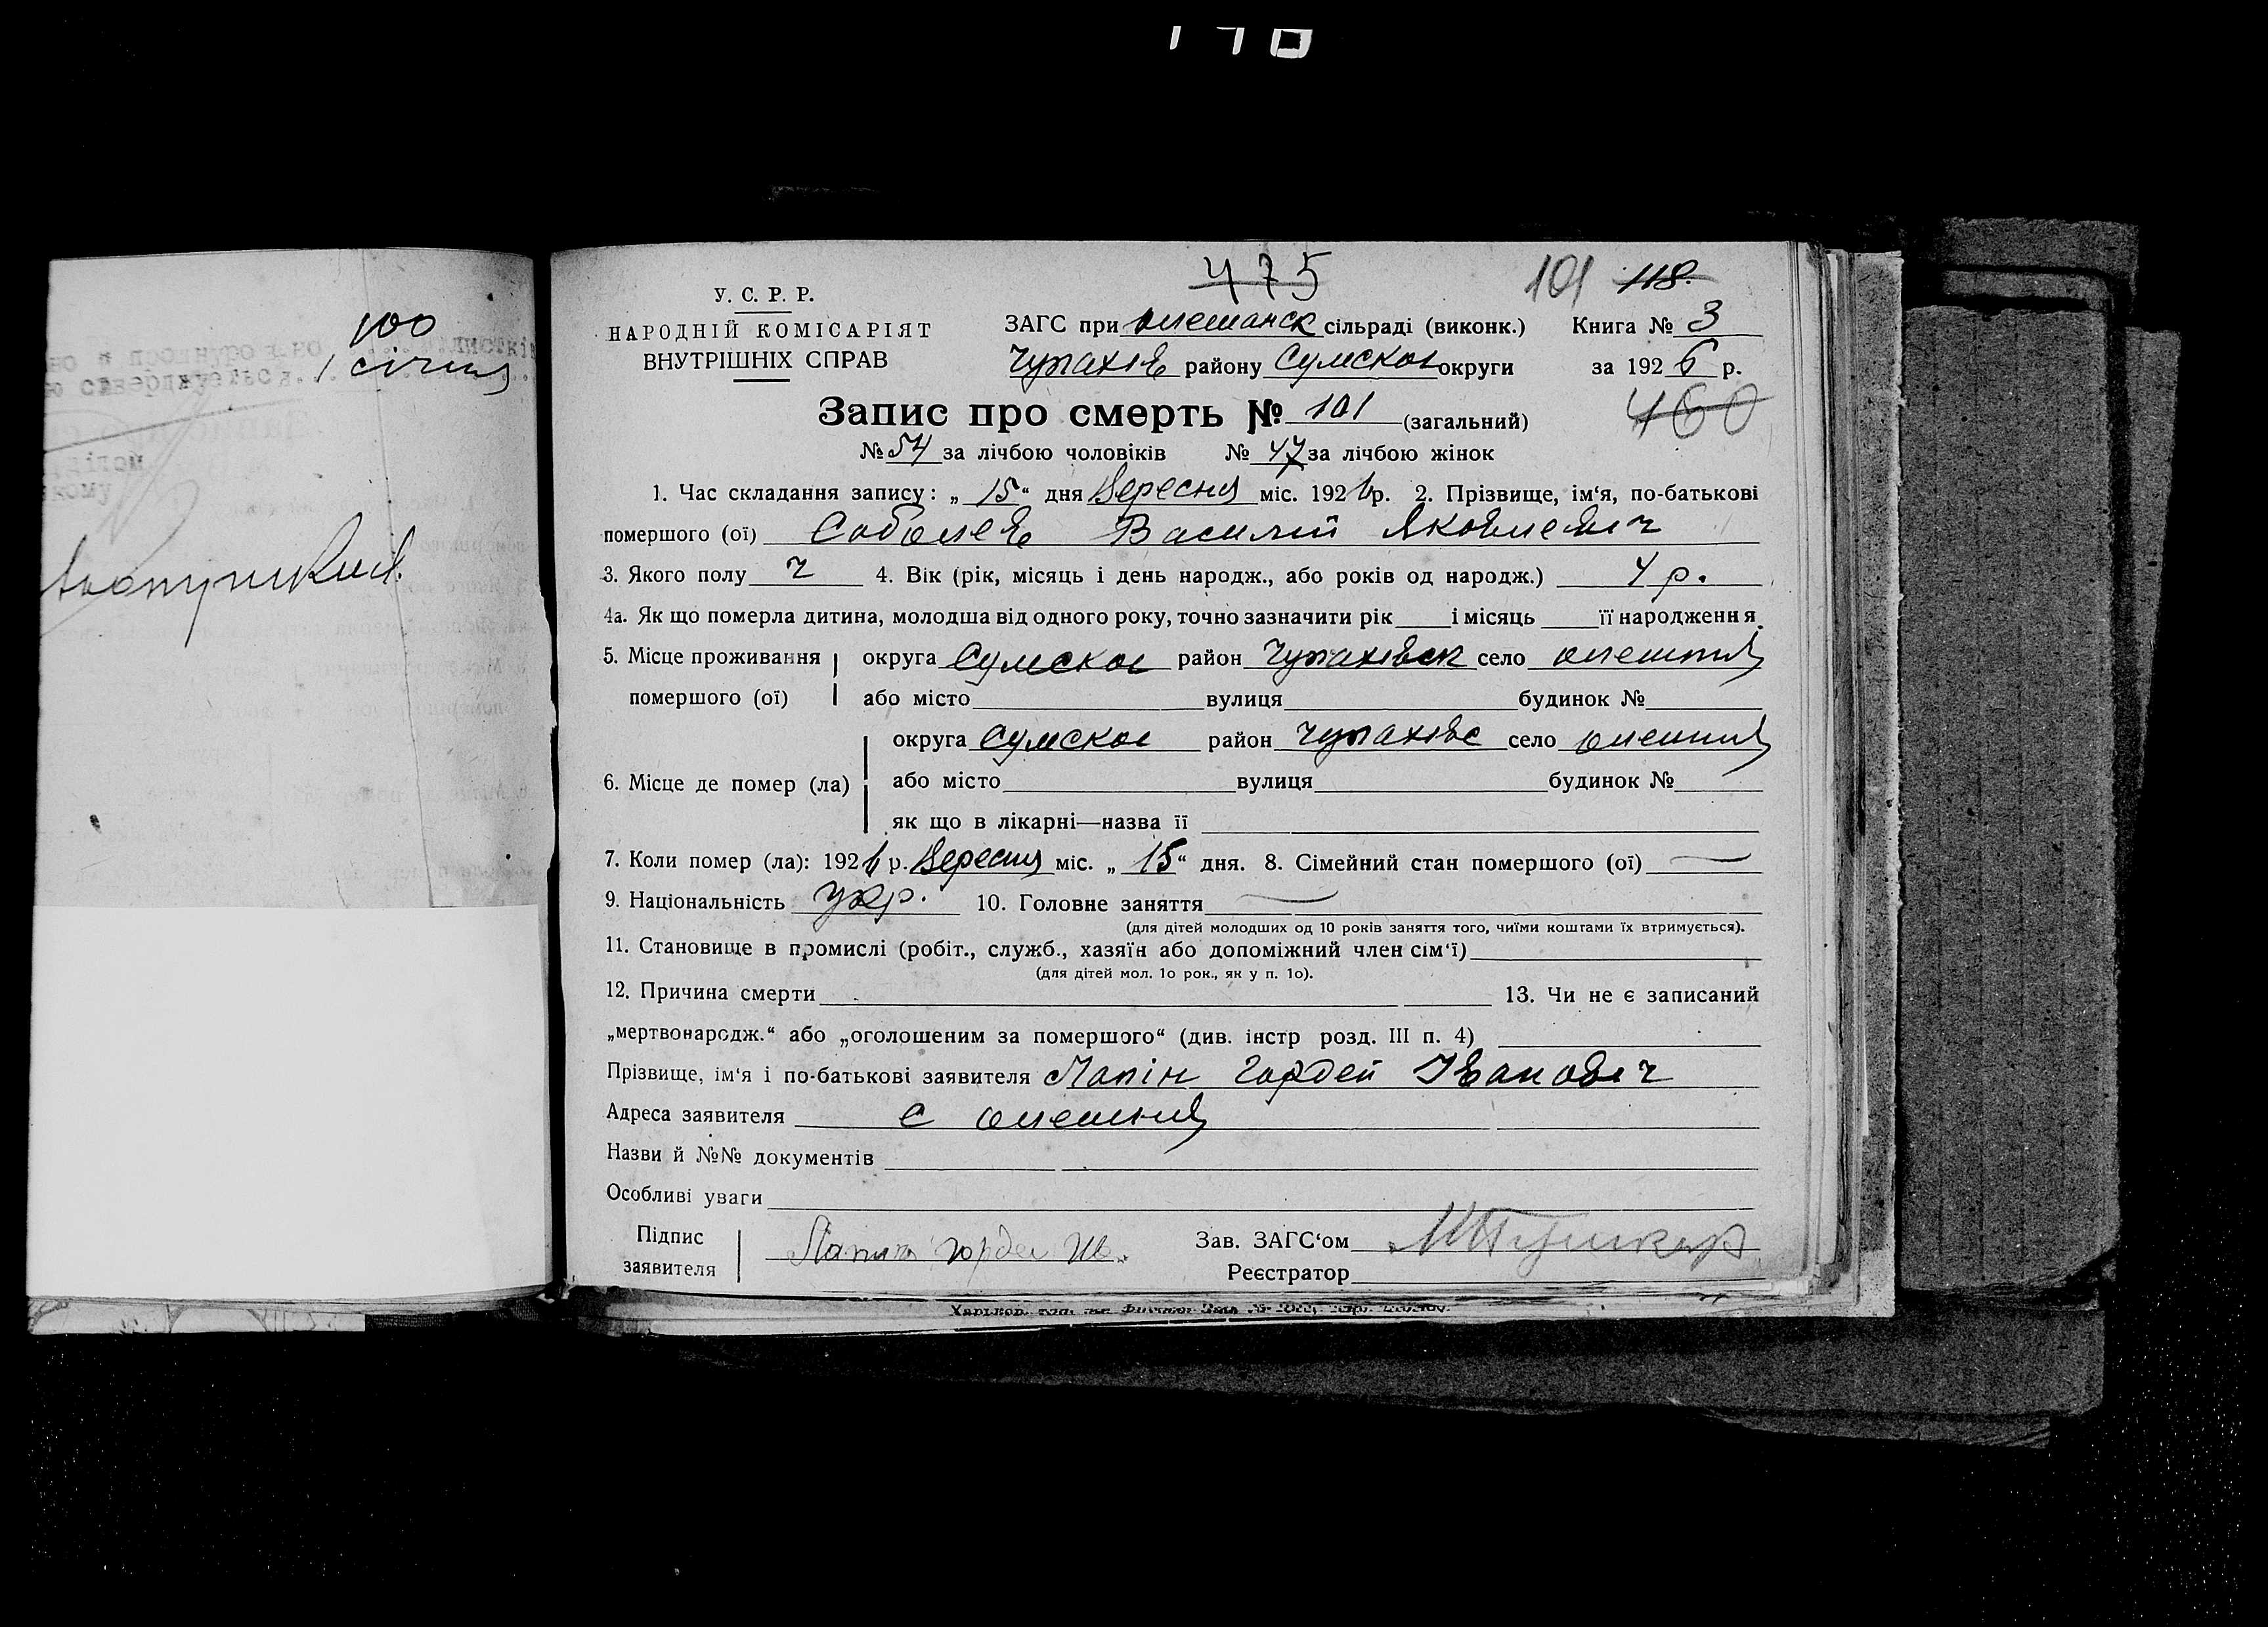 170
100
1 січня
475
101 118.
У. С. Р. Р.
НАРОДНІЙ КОМІСАРІЯТ
ВНУТРІШНІХ СПРАВ
ЗАГС при олешанск сільраді (виконк.) Книга № 3
Чупахів району Сумской округи за 1926 р.
460
Запис про смерть № 101 (загальний)
№ 54 за лічбою чоловіків № 47 за лічбою жінок
1. Час складання запису: „ 15 “ дня Вересня міс. 1926 р. 2. Прізвище, ім‘я, по-батькові
помершого (ої) Соболев Василий Яковлевич
3. Якого полу ч 4. Вік (рік, місяць і день народж., або років од народж.) 4 р.
4а. Як що померла дитина, молодша від одного року, точно зазначити рік і місяць її народження.
5. Місце проживання округа Сумское район Чупахівск село олешня
помершого (ої) або місто вулиця будинок №
округа Сумское район Чупахівс село олешня
6. Місце де помер (ла) або місто вулиця будинок №
як що в лікарні—назва її
7. Коли помер (ла): 1926 р. Вересня міс. „ 15 “ дня. 8. Сімейний стан помершого (ої) —
9. Національність укр. 10. Головне заняття —
(для дітей молодших од 10 років заняття того, чиїми коштами їх втримується).
11. Становище в промислі (робіт., служб., хазяїн або допоміжний член сім‘ї)
(для дітей мол. 1о рок., як у п. 1о).
12. Причина смерти 13. Чи не є записаний
„мертвонародж.“ або „оголошеним за помершого“ (див. інстр розд. III п. 4)
Прізвище, ім‘я і по-батькові заявителя Лапін Гордей Іванович
Адреса заявителя с олешня
Назви й №№ документів
Особливі уваги
Підпис
заявителя Гордей Ив. Зав. ЗАГС‘ом
Реєстратор